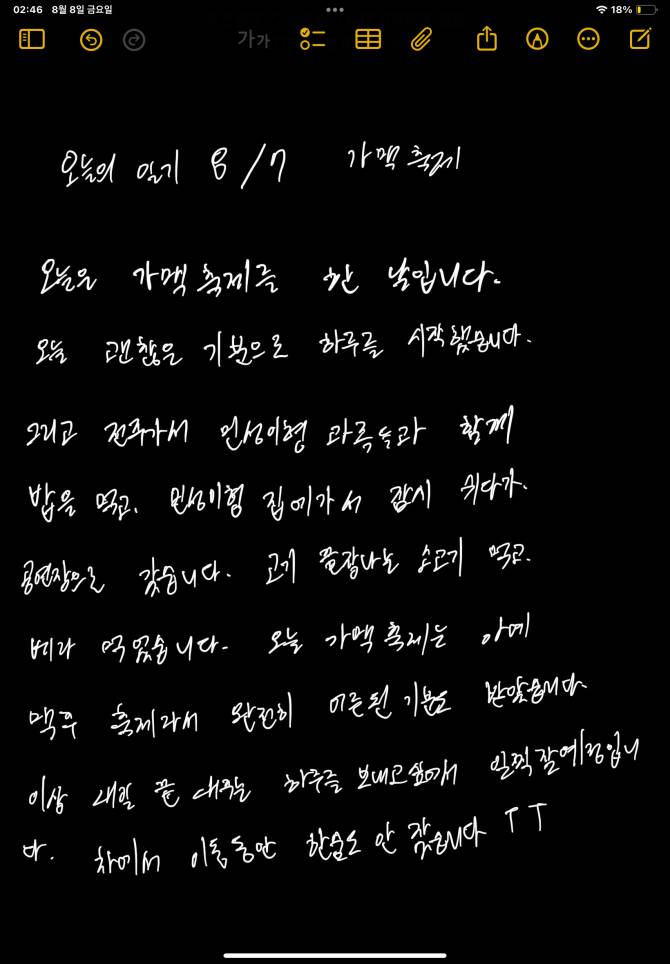 02:46 8월 8일 금요일
18%
가가
오늘의 일기 8/7 가맥축제
오늘은 가맥축제를 한 날입니다.
오늘 괜찮은 기분으로 하루를 시작했습니다.
그리고 전주가서 민성이형 가족들과 함께
밥을 먹고, 민성이형 집에가서 잠시 쉬다가.
공연장으로 갔습니다. 고기 끝장나는 소고기 먹고.
먹었습니다. 오늘 가맥축제는 아예
맥주 축제라서 완전히 어른된 기분도 받았습니다.
이상 내일 끝 하루를 보내고싶어서 일찍잘예정입니
다. 차에서 이동동안 한숨도 안 잤습니다 ㅜㅜ